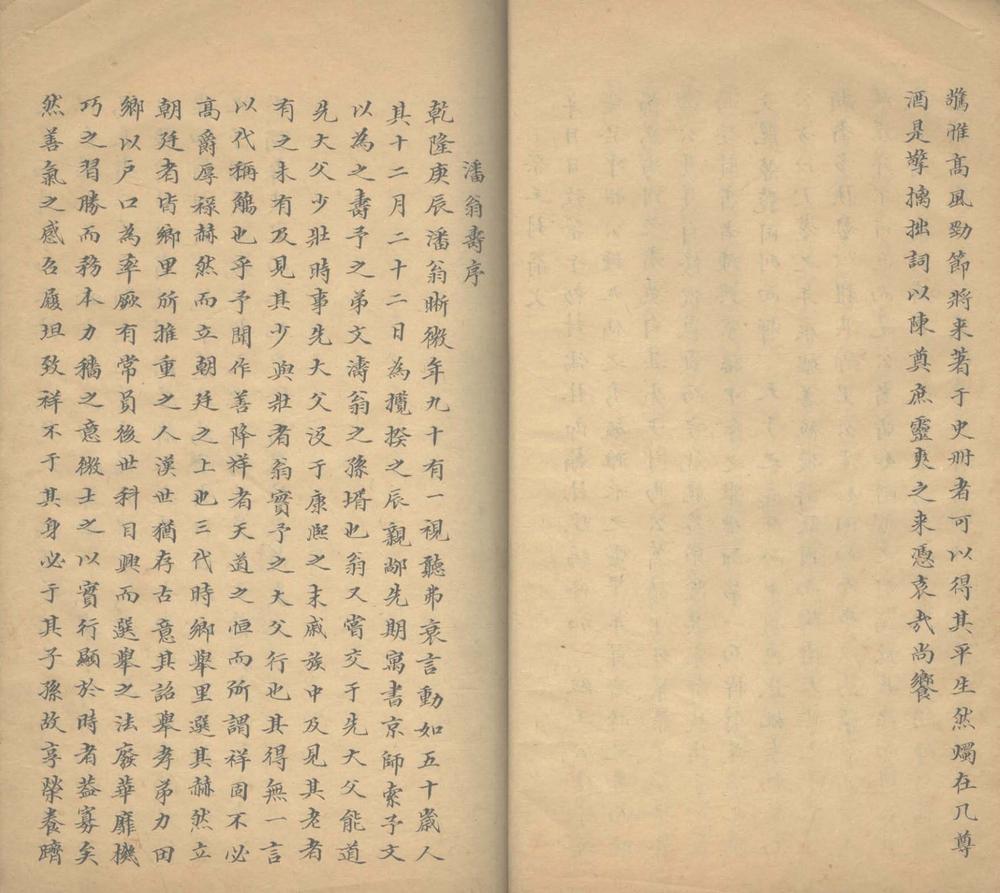 騖雅高風勁節將来著于史冊者可以得其平生然燭在几尊
酒是擎摛拙詞以陳奠庶靈爽之来憑哀哉尚饗
潘翁壽序
乾隆庚辰潘翁晰微年九十有一視聽弗衰言動如五十歲人
其十二月二十二日為攬揆之辰親鄰先期寓書京師索予文
以為之壽予之弟文濤翁之孫壻也翁又嘗交于先大父能道
先大父少壯時事先大父没于康熙之末戚族中及見其老者
有之未有及見其少與壯者翁實予之大父行也其得無一言
以代稱觴也乎予聞作善降祥者天道之恒而所謂祥固不必
高爵厚禄赫然而立朝廷之上也三代時鄉舉里選其赫然立
朝廷者皆鄉里所推重之人漢世猶存古意其詔舉孝弟力田
鄉以戶口為率厥有常員後世科目興而選舉之法廢華靡機
巧之習勝而務本力穡之意微士之以實行顯於時者葢寡矣
然善氣之感召履坦致祥不于其身必于其子孫故享榮養躋